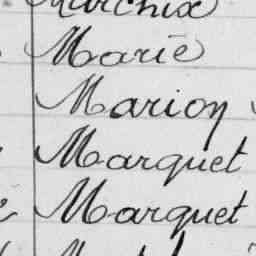 Marie
Marion
Marquet
Marquet